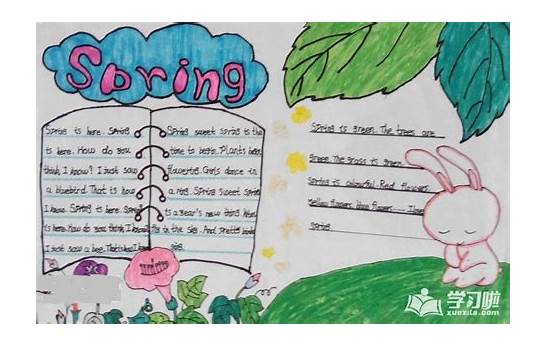 Spring
Spring is here. Spring
is here. How do you
think I know? I just saw
a bluebird. That is how
I know. Spring is here. Spring
is here. How do you think I know
I just saw a bee. That is how I know
Spring sweet spring is the
time to begin. Plants
flowering. Girls dance in
a ring. Spring sweet spring
is a year's new thing
in the sky. And pretty
sing.
Spring is green. The trees are
green. The grass is green.
Spring is colourful. Red flowers.
Yellow flowers. blue flowers....
Spring
学习啦
xuexila.com